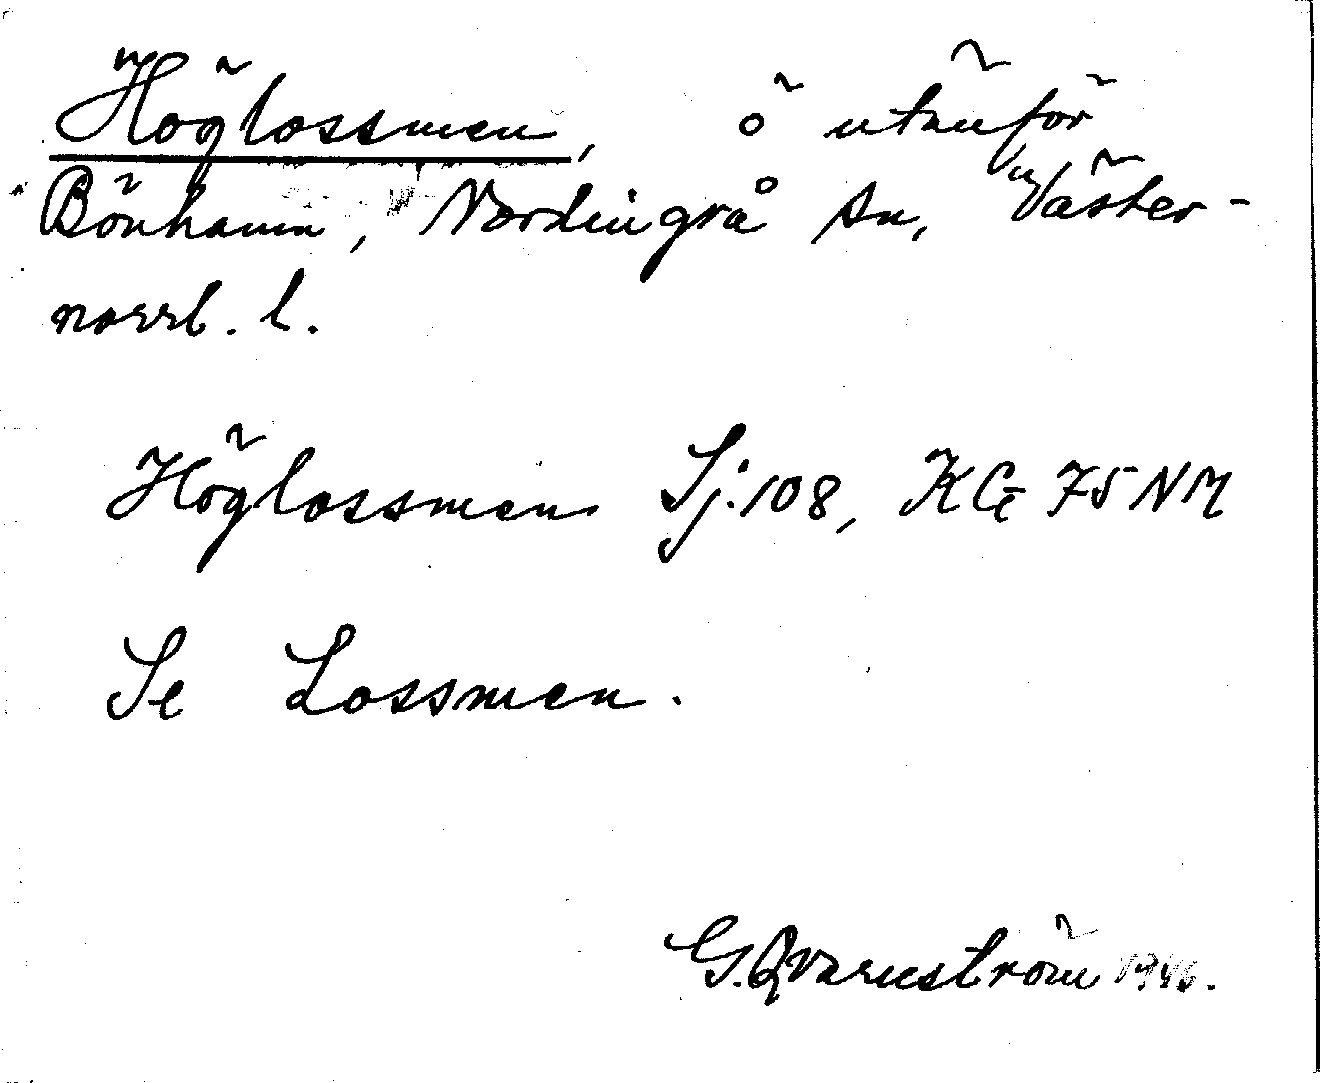 Höglossmen, ö utanför
Bönhamn, Nordingrå sn, Väster-
norrl. l.
Höglossmen Sj:108, KG 75 NM
Se Lossmen.
G. Qvarnström 1946.